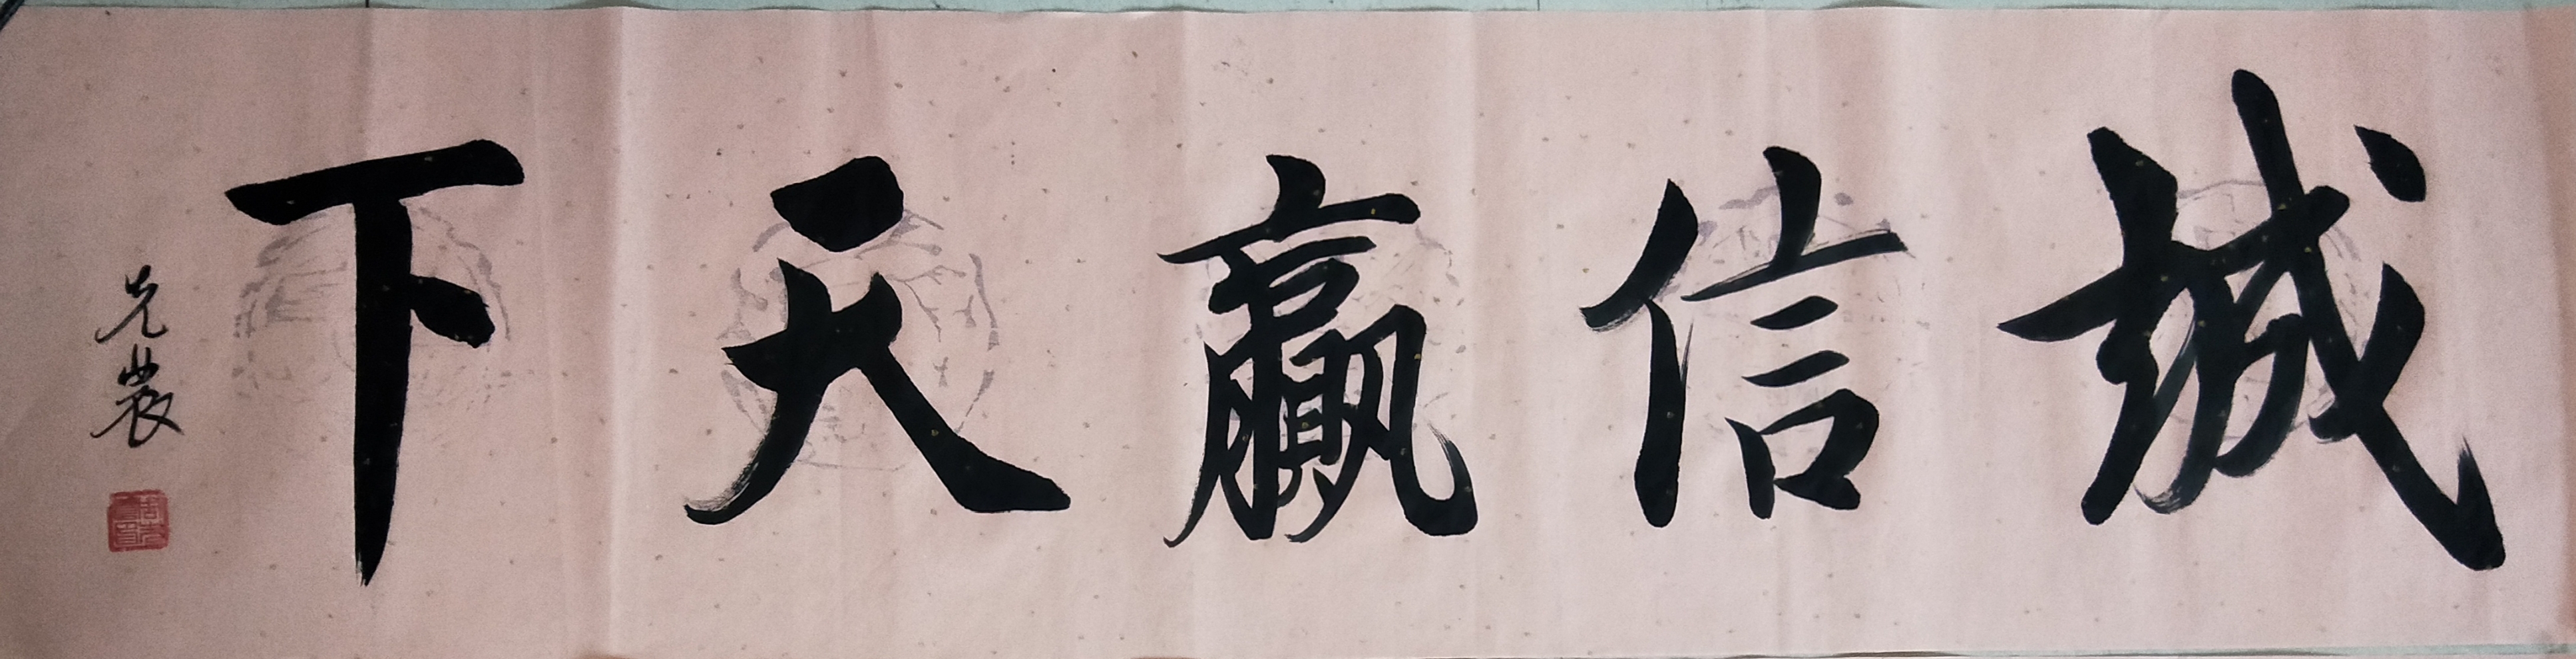 诚信赢天下
光農